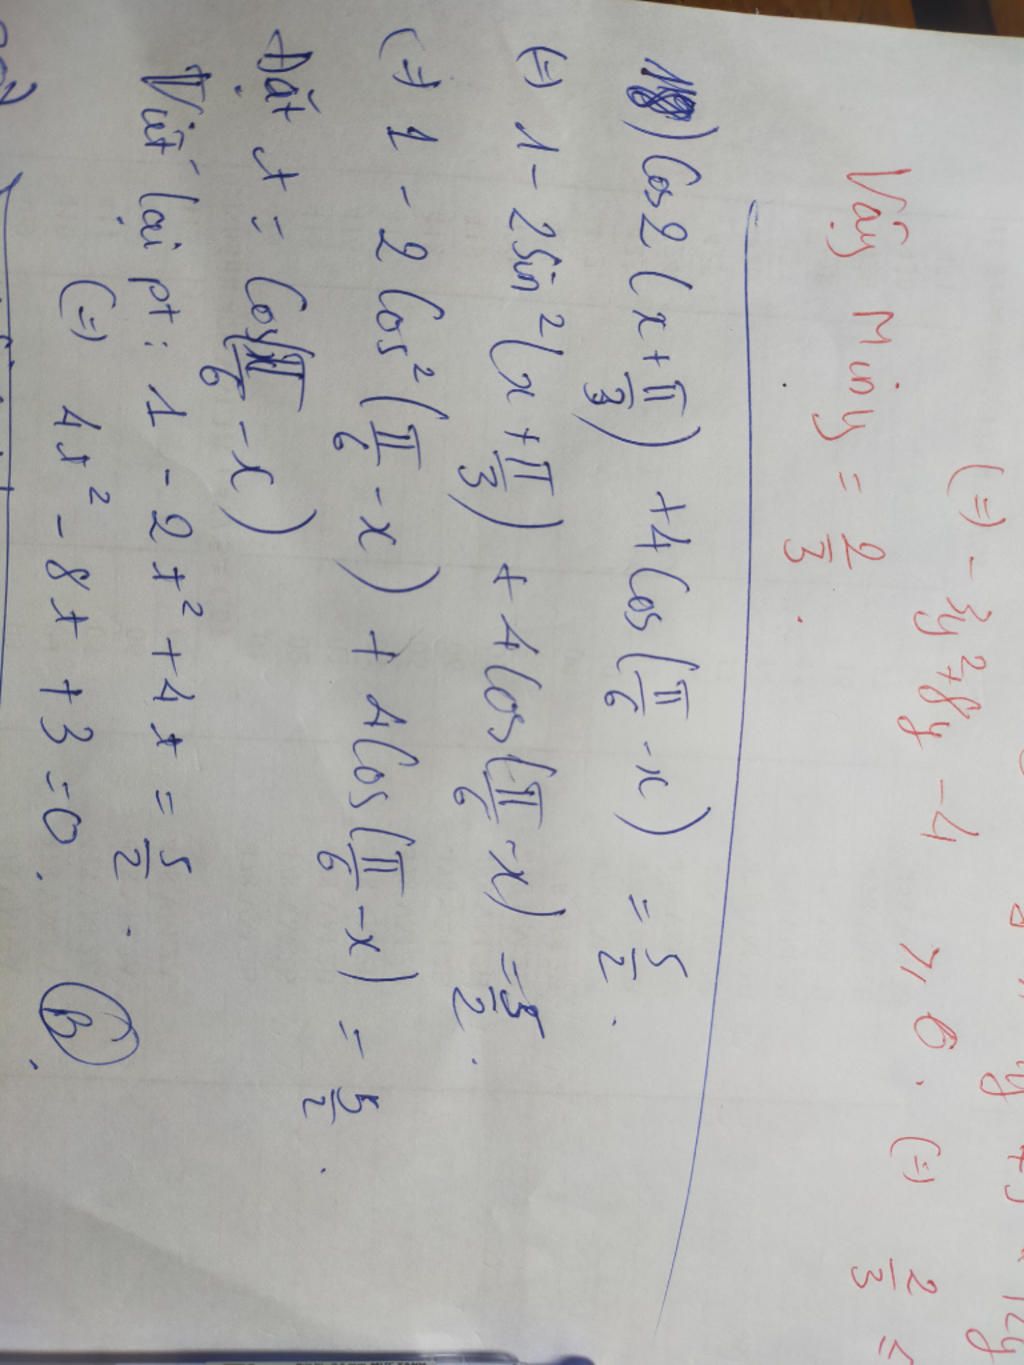 (=) - 3y² + 8y - 4 ≥ 0. (=) 2/3 ≤
Vậy Min y = 2/3.
18) Cos2(x + π/3) + 4Cos(π/6 - x) = 5/2.
(=) 1 - 2Sin²(x + π/3) + 4Cos(π/6 - x) = 5/2.
(=) 1 - 2Cos²(π/6 - x) + 4Cos(π/6 - x) = 5/2.
Đặt t = Cos(π/6 - x)
Viết lại pt: 1 - 2t² + 4t = 5/2.
(=) 4t² - 8t + 3 = 0. (B).